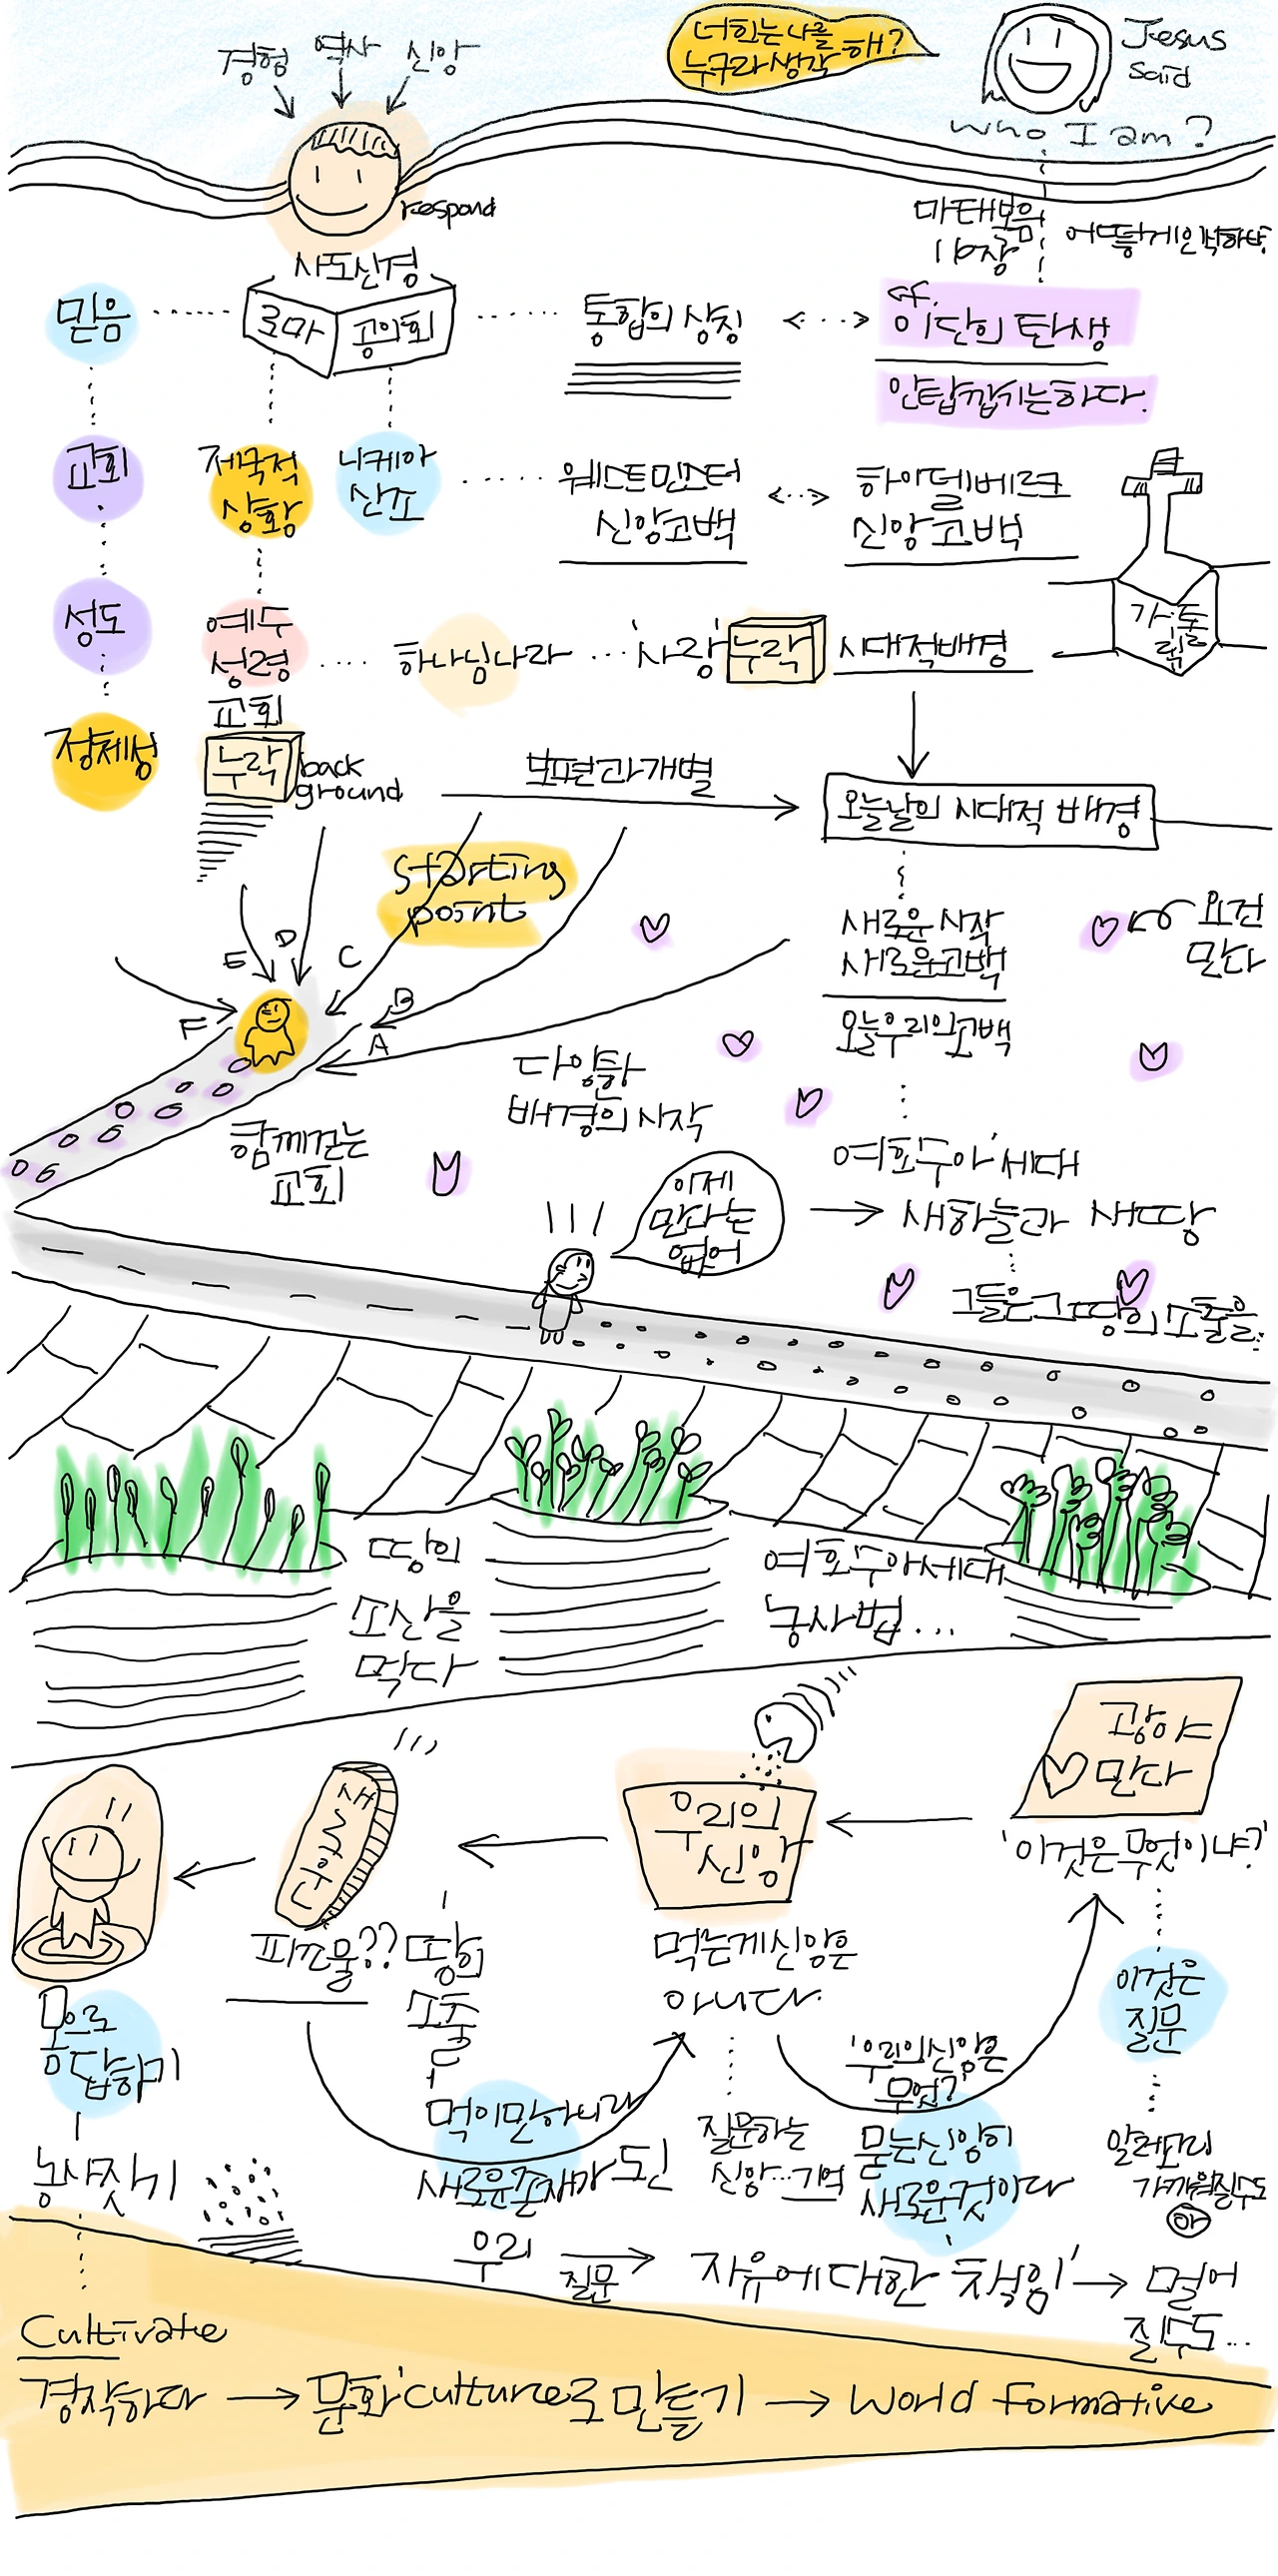 너희는 나를
누구라 생각해?
Jesus
said
Who I am?
경험 역사 신앙
respond
마태복음
16장
어떻게 인식하나?
사도신경
믿음
로마 공의회
통합의 상징
cf.
이단의 탄생
안타깝기는하다.
교회
제국적
상황
니케아
신조
웨스트민스터
신앙고백
하이델베르크
신앙고백
가톨릭
성도
예수
성령
교회
하나님나라
'사랑' 누락
시대적배경
정체성
누락
back
ground
보편과 개별
오늘날의 시대적 배경
starting
point
새로운 시작
새로운고백
오늘우리의고백
요건
만나
F E D C B A
다양한
배경의 시작
함께걷는
교회
이제
만나는
없어
여호수아 세대
새하늘과 새땅
그들은 그 땅의 소출을..
땅의
소산을
먹다
여호수아세대
농사법...
광야
만나
'이것은 무엇이냐?'
우리의
신앙
먹는게신앙은
아니다.
새누룩
피조물?? 땅의
소출
몸으로
응답하기
농사짓기
이것은
질문
알레고리
가까워질수도
먹이만하니라
새로운존재가 되신
우리
질문하는
신앙...기억
'우리의신앙은
무엇?'
묻는신앙이
새로운것이다
질문
자유에대한 '책임'
멀어
질수도...
Cultivate
경작하다 → 문화 'culture로 만들기 → World Formative